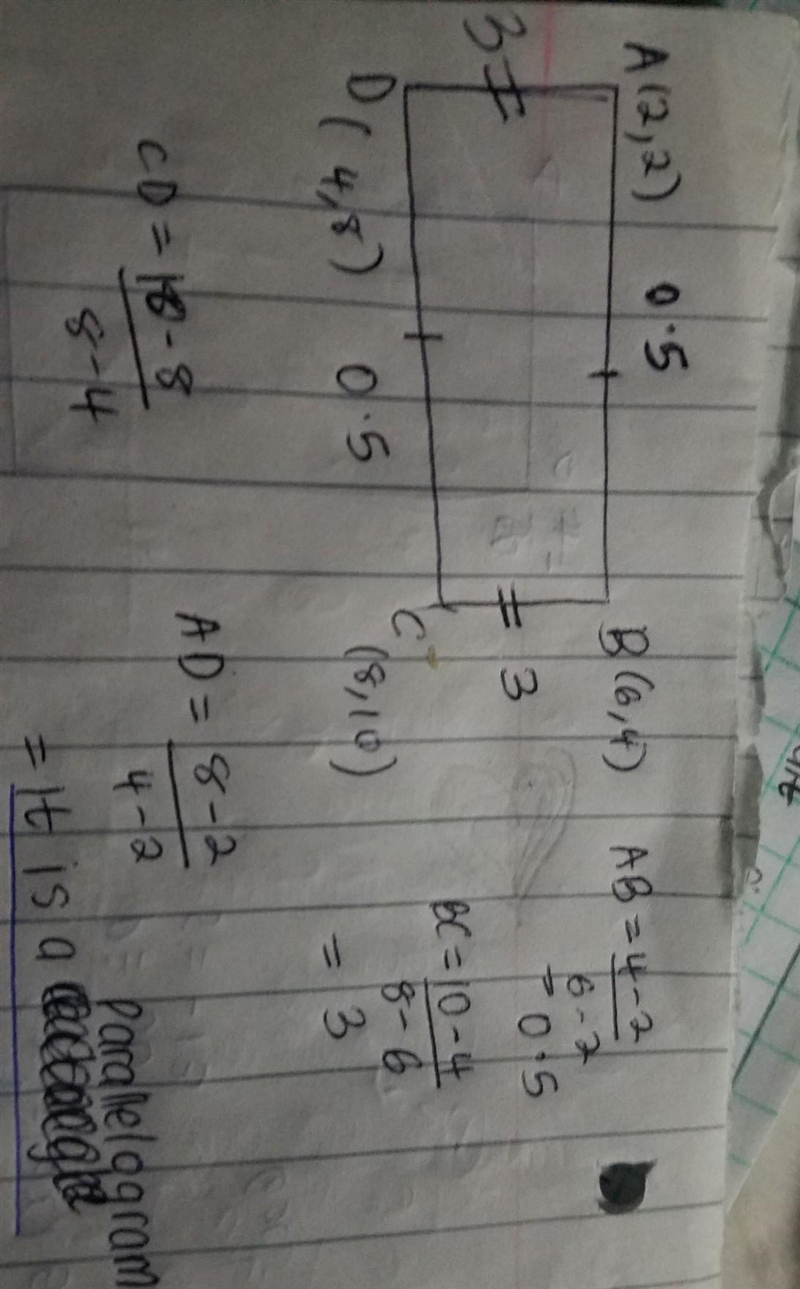 A(2,2) 0.5 B(6,4)
3
3
D(4,8) 0.5 C(8,10)
AB = 4-2
6-2
= 0.5
BC = 10-4
8-6
= 3
CD = 10-8
8-4
AD = 8-2
4-2
parallelogram
= It is a